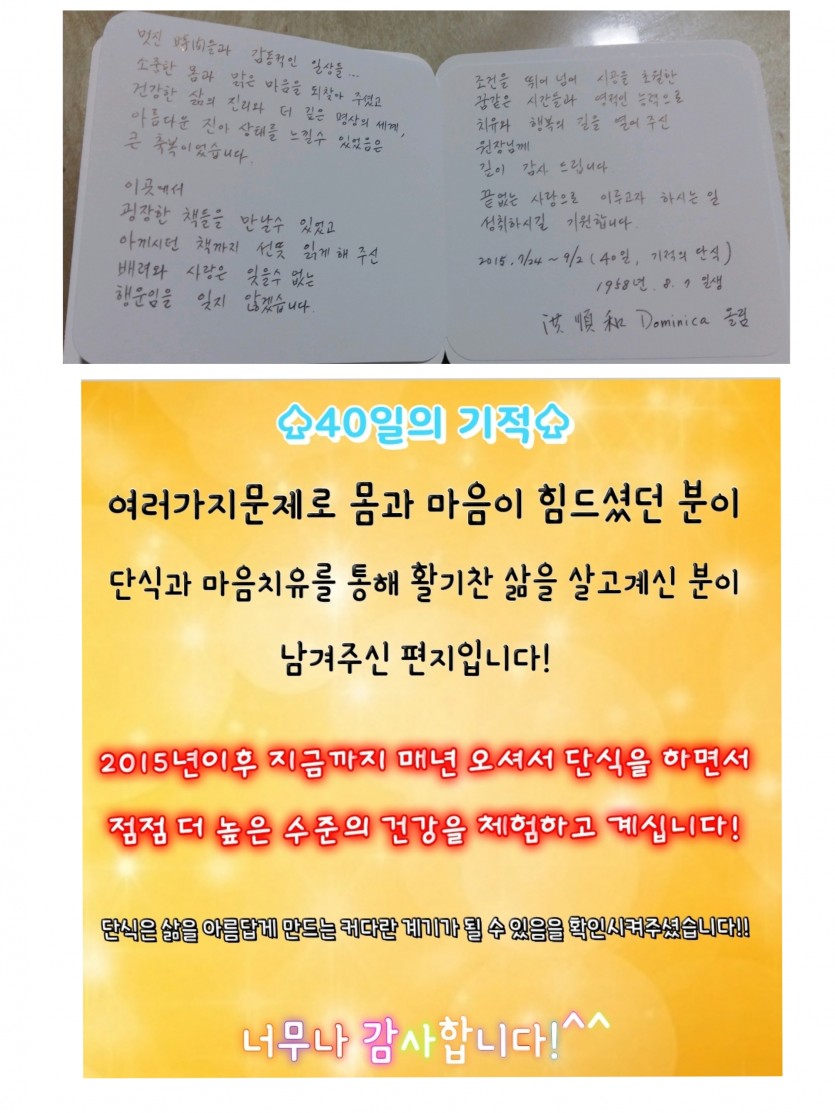 멋진 들과 감동적인 일상들...
소중한 몸과 맑은 마음을 되찾아 주셨고
건강한 삶의 진리와 더 깊은 명상의 세계,
아름다운 진아 상태를 느낄수 있었음은
큰 축복이었습니다.
이곳에서
굉장한 책들을 만날수 있었고
아끼시던 책까지 선뜻 읽게 해 주신
배려와 사랑은 잊을수 없는
행운임을 잊지 않겠습니다.
조건을 뛰어 넘어 시공을 초월한
꿈같은 시간들과 영적인 능력으로
치유와 행복의 길을 열어 주신
원장님께
깊이 감사 드립니다
끝없는 사랑으로 이루고자 하시는 일
성취하시길 기원합니다.
2015. 7/24 ~ 9/2 (40일, 기적의 단식)
1958년. 8. 7 일생
洪 順 和 Dominica 올림
♤40일의 기적♤
여러가지문제로 몸과 마음이 힘드셨던 분이
단식과 마음치유를 통해 활기찬 삶을 살고계신 분이
남겨주신 편지입니다!
2015년이후 지금까지 매년 오셔서 단식을 하면서
점점 더 높은 수준의 건강을 체험하고 계십니다!
단식은 삶을 아름답게 만드는 커다란 계기가 될 수 있음을 확인시켜주셨습니다!!
너무나 감사합니다!^^